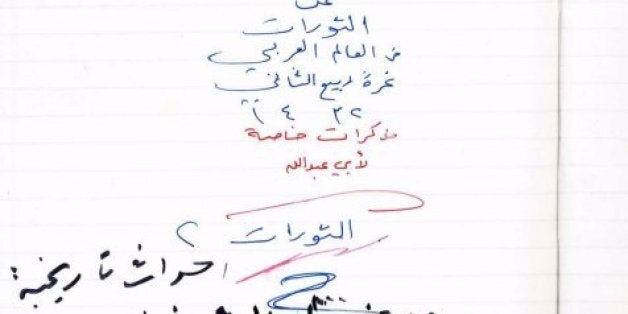 عن
الثورات
في العالم العربي
غرة ربيع الثاني
١٤٣٢
مذكرات خاصة
لأبي عبدالله
الثورات ٢
احداث تاريخية: